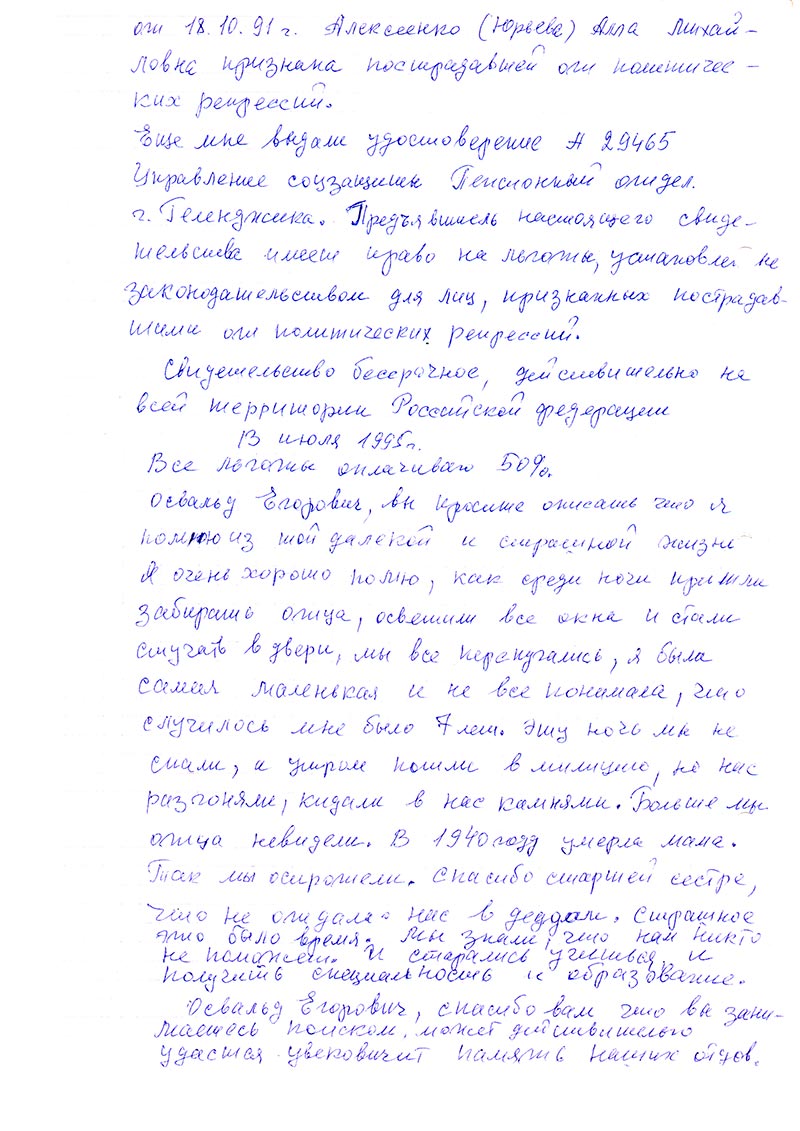 от 18.10.91 г. Алексеенко (Юрьева) Алла Михай-
ловна признана пострадавшей от политичес-
ких репрессий.
Еще мне выдали удостоверение А 29465
Управление соцзащиты Пенсионный отдел.
г. Геленджика. Предъявитель настоящего свиде-
тельства имеет право на льготы, установлен не
законодательством для лиц, признанных пострадав-
шими от политических репрессий.
Свидетельство бессрочное, действительно на
всей территории Российской федерации
13 июля 1995г.
Все льготы оплачиваю 50%.
Освальд Егорович, вы просите описать что я
помню из той далекой и страшной жизни
Я очень хорошо помню, как среди ночи пришли
забирать отца, осветили все окна и стали
стучать в двери, мы все перепугались, я была
самая маленькая и не все понимала, что
случилось мне было 7 лет. Эту ночь мы не
спали, а утром пошли в милицию, но нас
разгоняли, кидали в нас камнями. Больше мы
отца невидели. В 1940 году умерла мама.
Так мы осиротели. Спасибо старшей сестре,
что не отдала нас в деддом. Страшное
это было время. Мы знали, что нам никто
не поможет. И старались учиться и
получить специальность и образование.
Освальд Егорович, спасибо вам что вы зани-
маетесь поиском, может действительно
удастся увековичит память наших отцов.